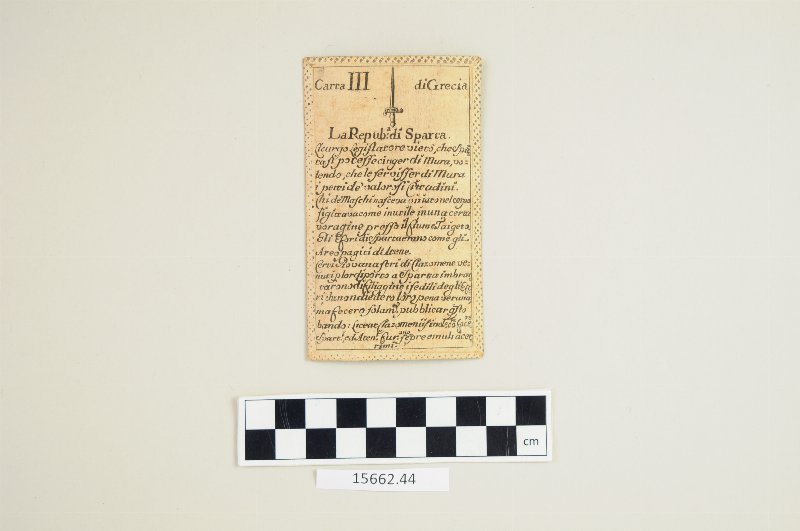 Carta III di Grecia
La Repub.ª di Sparta.
Licurgo Legislatore vietò, che Spar
ta si potesse cinger di Mura, vo-
lendo, che le servisser di Mura
i petti de valorosi Cittadini.
Chi de Maschi nasceva vitiato nel corpo
si gittava come inutile in una certa
voragine presso il fiume Taigeta
Gli Efori di Sparta erano come gli
Areopagiti di Atene.
Certi Giovanastri di Clazomene ve-
nuti p lor diporto a Sparta imbrat
tarono di filiggine i sedili degli Efo
ri che non diedero loro pena veruna
ma fecero solam.te pubblicar qsto
bando: Liceat Clazomeniis indecorè facere
Spart. ed Aten. fur.ono sepre emuli acer
rimi.
cm
15662.44